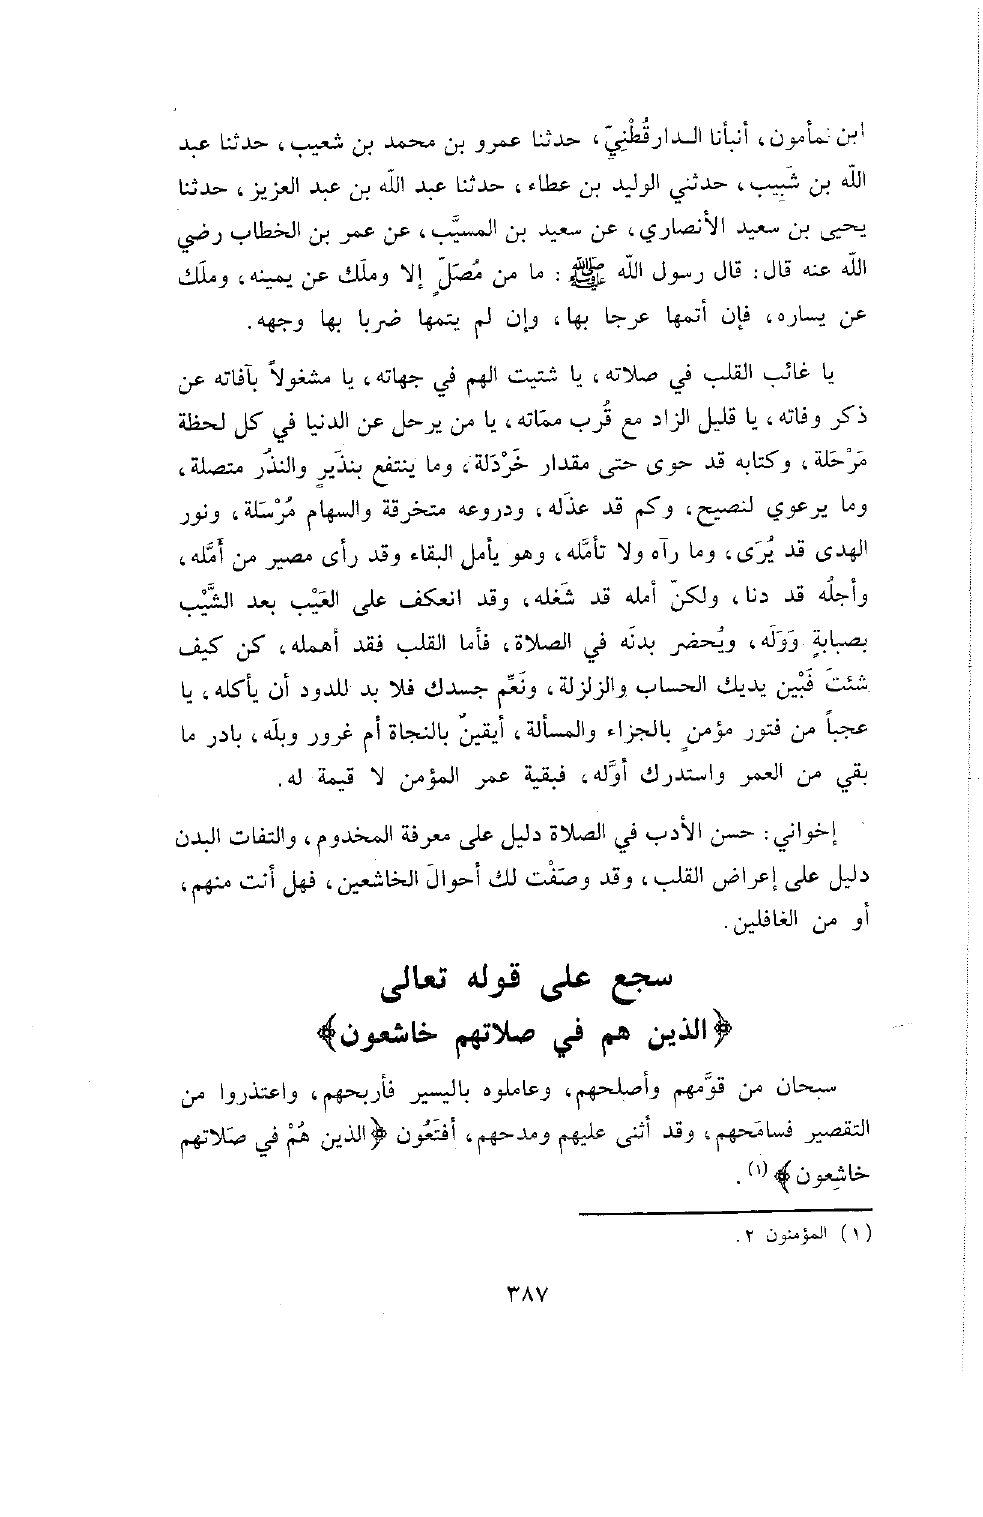 ابن المأمون، أنبأنا الدارقُطْنِيّ، حدثنا عمرو بن محمد بن شعيب، حدثنا عبد
الله بن شَبِيب، حدثني الوليد بن عطاء، حدثنا عبد الله بن عبد العزيز، حدثنا
يحيى بن سعيد الأنصاري، عن سعيد بن المسيَّب، عن عمر بن الخطاب رضي
الله عنه قال: قال رسول الله ﷺ: ما من مُصَلٍّ إلا وملَك عن يمينه، وملَك
عن يساره، فإن أتمها عرجا بها، وإن لم يتمها ضربا بها وجهه.
يا غائب القلب في صلاته، يا شتيت الهم في جهاته، يا مشغولاً بآفاته عن
ذكر وفاته، يا قليل الزاد مع قُرب مماته، يا من يرحل عن الدنيا في كل لحظة
مَرْحَلة، وكتابه قد حوى حتى مقدار خَرْدَلة، وما ينتفع بنذيرٍ والنذُر متصلة،
وما يرعوي لنصيح، وكم قد عذَله، ودروعه متخرقة والسهام مُرْسَلة، ونور
الهدى قد يُرَى، وما رآه ولا تأمَّله، وهو يأمل البقاء وقد رأى مصير من أَمَّله،
وأجلُه قد دنا، ولكنّ أمله قد شغله، وقد انعكف على العَيْب بعد الشَّيْب
بصبابةٍ وَوَلَه، ويُحضر بدنَه في الصلاة، فأما القلب فقد أهمله، كن كيف
شئتَ فَبْين يديك الحساب والزلزلة، ونَعِّم جسدك فلا بد للدود أن يأكله، يا
عجباً من فتور مؤمنٍ بالجزاء والمسألة، أيقينٌ بالنجاة أم غرور وبلَه، بادر ما
بقي من العمر واستدرك أوَّله، فبقية عمر المؤمن لا قيمة له.
إخواني: حسن الأدب في الصلاة دليل على معرفة المخدوم، والتفات البدن
دليل على إعراض القلب، وقد وصَفْت لك أحوالَ الخاشعين، فهل أنت منهم،
أو من الغافلين.
سجع على قوله تعالى
﴿الذين هم في صلاتهم خاشعون﴾
سبحان من قوَّمهم وأصلحهم، وعاملوه باليسير فأربحهم، واعتذروا من
التقصير فسامَحهم، وقد أثنى عليهم ومدحهم، أفَتَعُون ﴿الذين هُمْ في صَلاتهم
خاشِعون﴾ (١).
(١) المؤمنون ٢.
٣٨٧